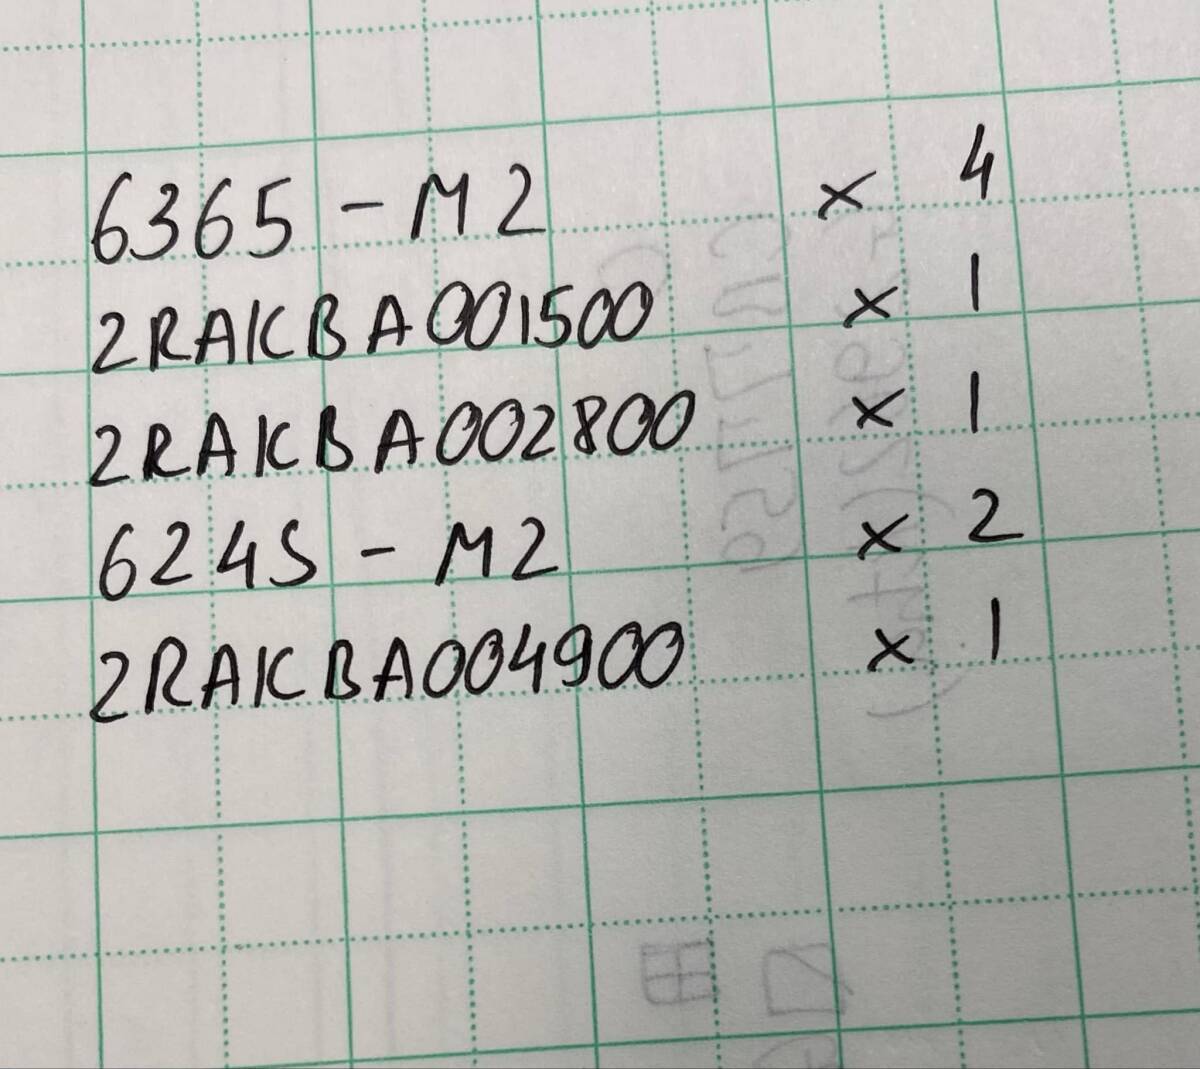 6365-M2 x 4
2RAKBA001500 x 1
2RAKBA002800 x 1
6245-M2 x 2
2RAKBA004900 x 1